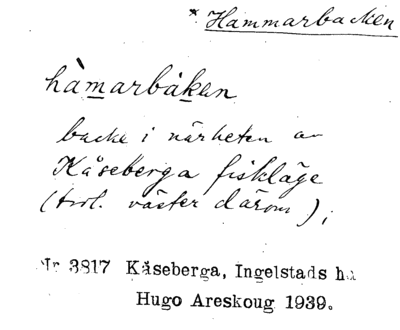 * Hammarbacken
hàmarbákan
backe i närheten av
Kåseberga fiskläge
(trol. väster därom);
Nr 3817 Kåseberga, Ingelstads hd
Hugo Areskoug 1939.